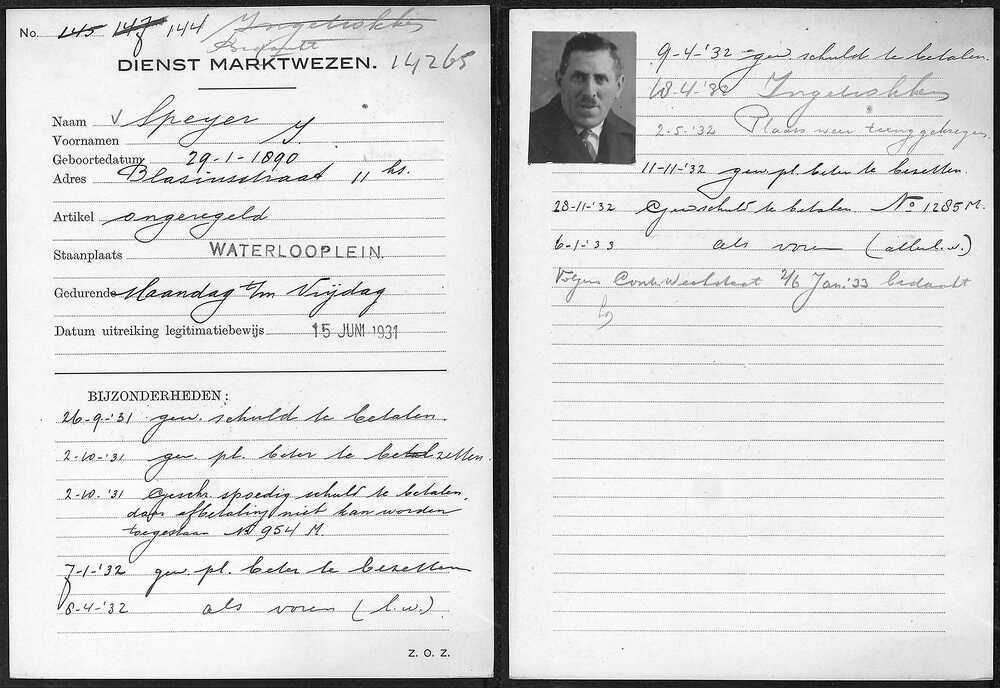 No. 145 147 144 Ingetrokken
Bedankt
DIENST MARKTWEZEN. 14265
Naam v Speyer
Voornamen J.
Geboortedatum 29-1-1890
Adres Blasiusstraat 11 hs.
Artikel ongeregeld
Staanplaats WATERLOOPLEIN.
Gedurende Maandag t/m Vrijdag
Datum uitreiking legitimatiebewijs 15 JUNI 1931
BIJZONDERHEDEN:
26-9-'31 gew. schuld te betalen.
2-10-'31 gew. pl. beter te betal zetten.
2-10-'31 Geschr. spoedig schuld te betalen,
daar afbetaling niet kan worden
toegestaan No 954 M.
7-1-'32 gew. pl. beter te bezetten
8-4-'32 als voren (l.w.)
Z. O. Z.
9-4-'32 gew. schuld te betalen.
18-4-'32 Ingetrokken
2-5-'32 Plaats weer teruggekregen
11-11-'32 gew. pl. beter te bezetten.
28-11-'32 Gew schuld te betalen. No 1285 M.
6-1-'33 als voren (allerl. w.)
Volgens Contr. Weekstaat 2/6 Jan. '33 bedankt